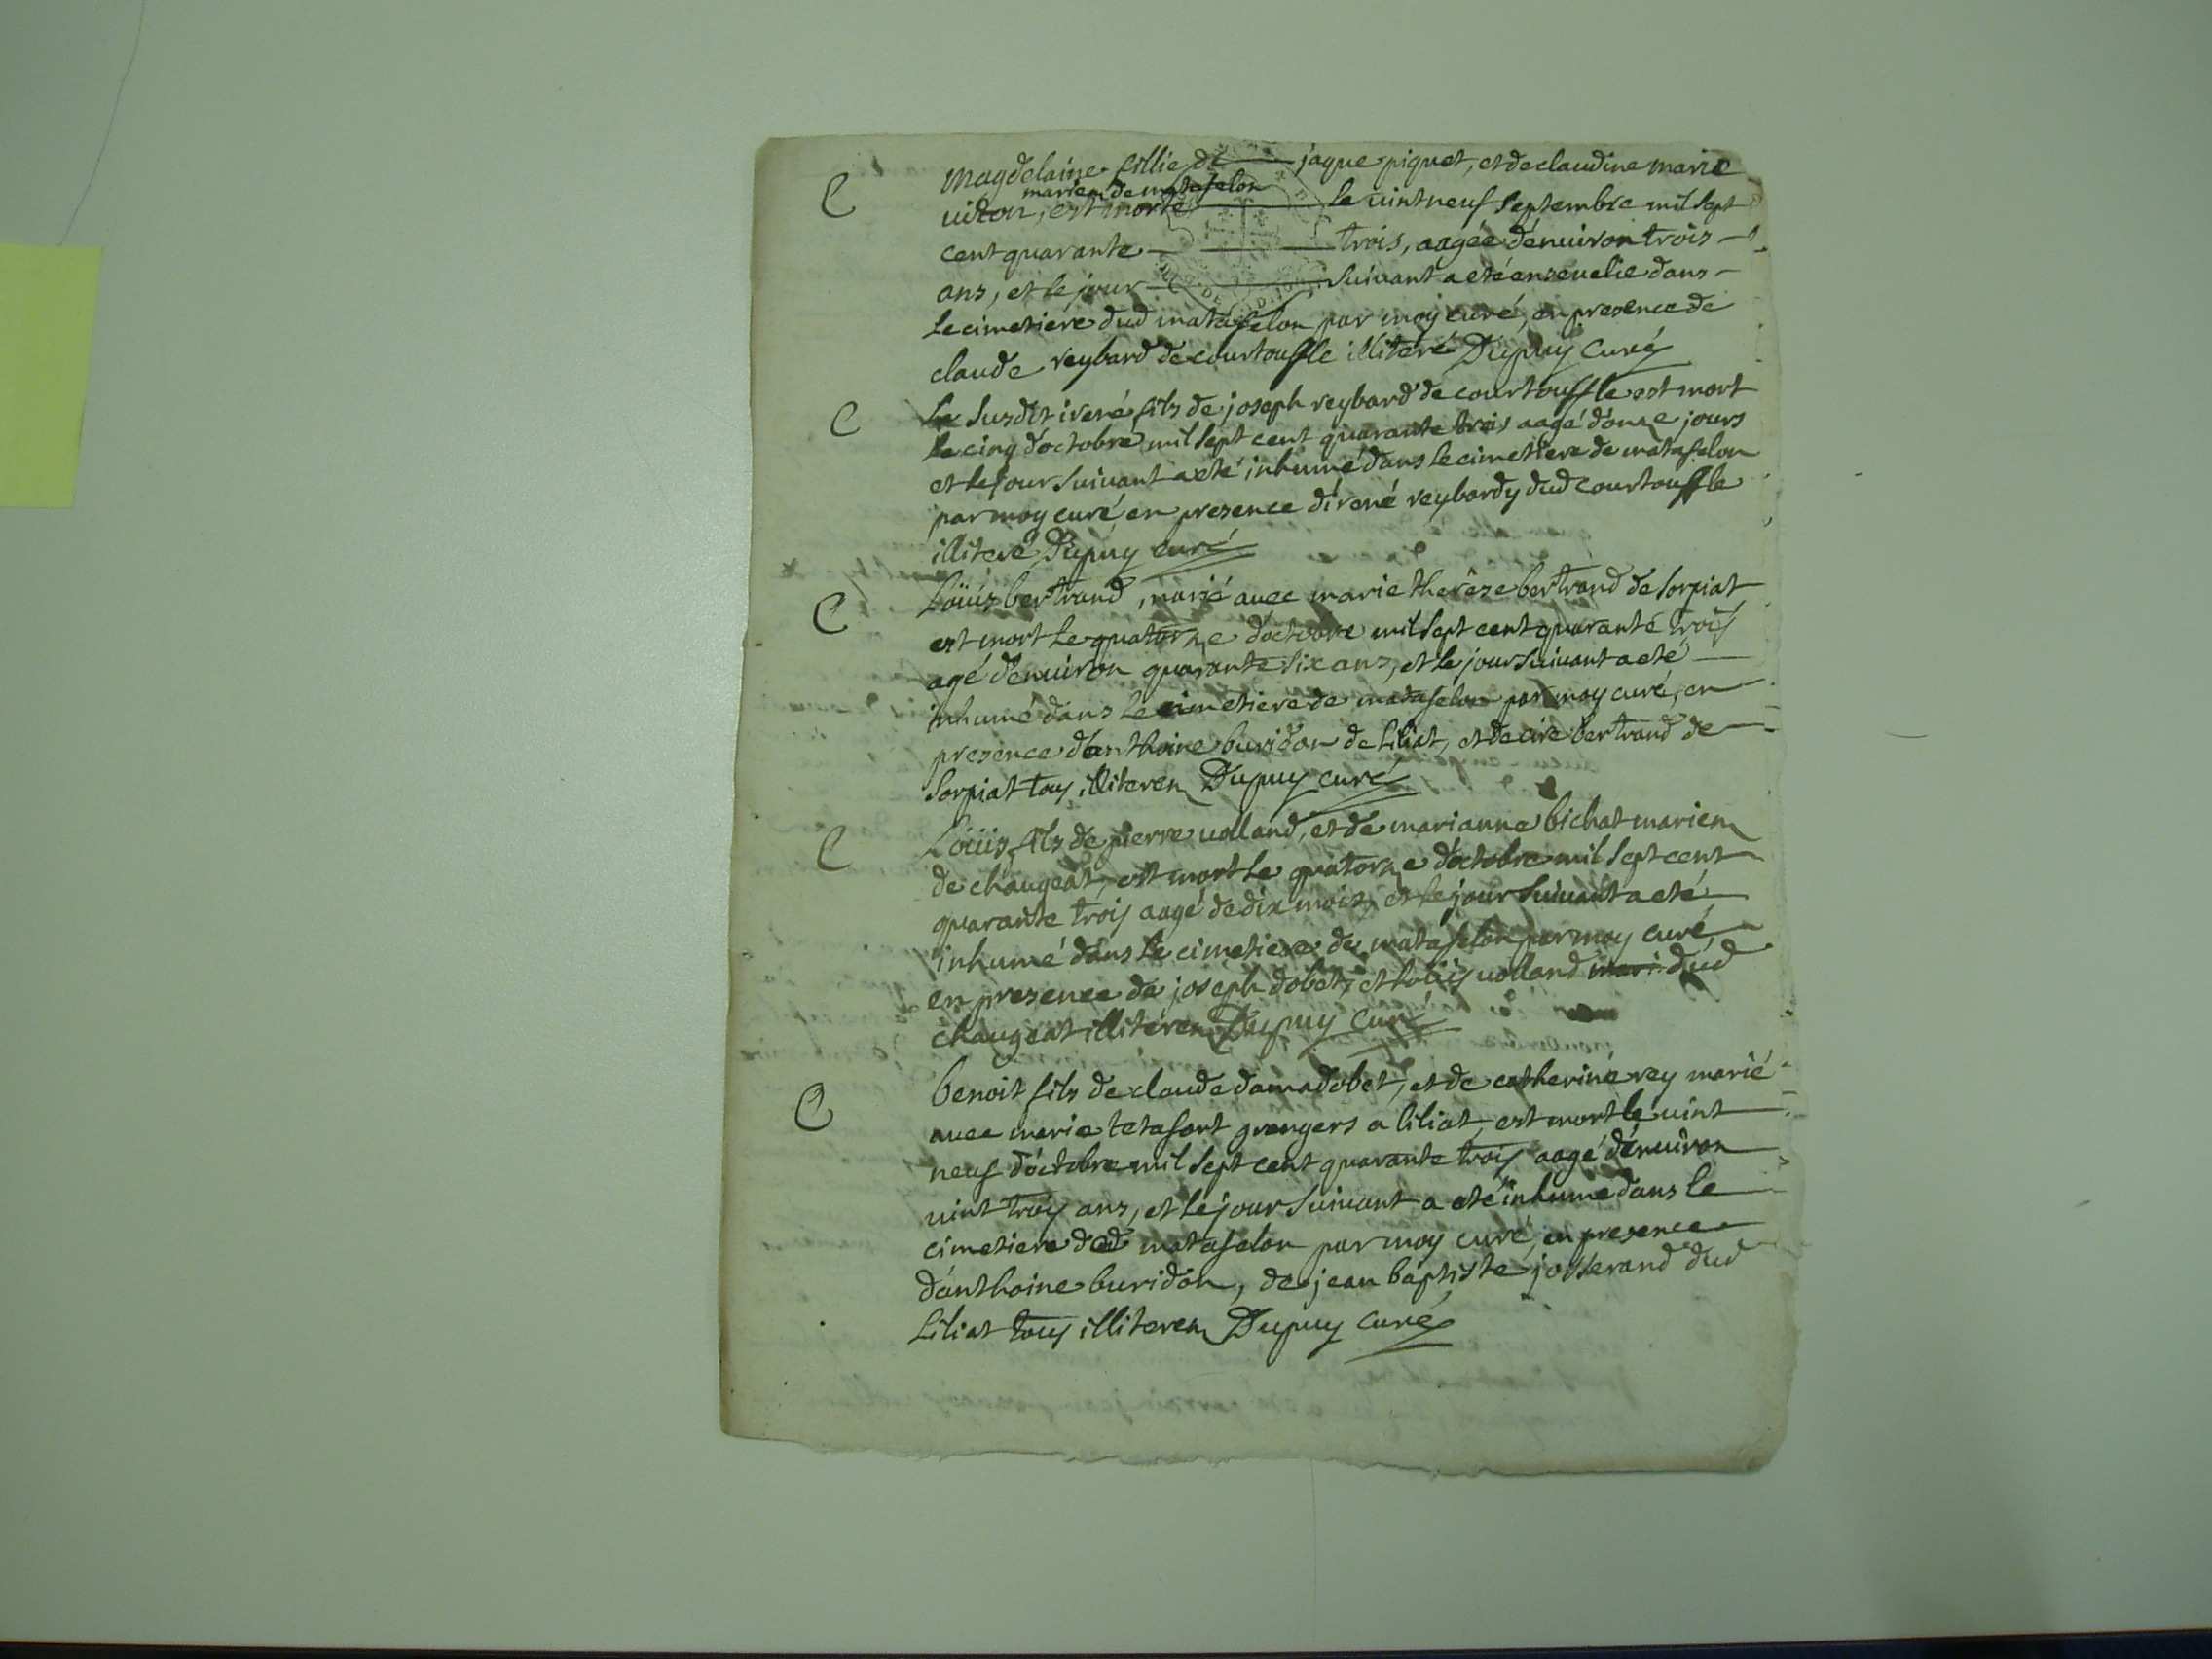 C magdelaine fillie de jaque piquet, et de claudine marie
mariez de matafelon
vidon, est morte le vint neuf septembre mil sept
cent quarante trois, aagée d'enuiron trois
ans, et le jour suiuant a eté enseuelie dans
le cimetiere dud matafelon par moy curé, en presence de
claude reybard de courtouffle illiteré Dupuy Curé
C Le susdit irené fils de joseph reybard de courtouffle est mort
le cinq d'octobre mil sept cent quarante trois aagé d'onze jours
et le jour suiuant a eté inhumé dans le cimetiere de matafelon
par moy curé en presence d'irené reybard dud courtouffle
illiteré Dupuy curé
C Loüis bertrand, marié auec marie therèze bertrand de sorpiat
est mort le quatorze d'octobre mil sept cent quarante trois
agé d'enuiron quarante six ans, et le jour suiuant a eté
inhumé dans le cimetiere de matafelon par moy curé, en
presence d'anthoine buridon de liliat, et de bertrand de
sorpiat tous illiterez Dupuy curé
C Loüis fils de pierre volland, et de marianne bichat mariez
de chaugeat, est mort le quatorze d'octobre mil sept cent
quarante trois aagé de dix mois, et le jour suiuant a eté
inhumé dans le cimetiere de matafelon par moy curé
en presence de joseph dobet, et loüis volland mari dud
chaugeat illiterez Dupuy Curé
C benoit fils de claude damadobet, et de catherine rey marié
auec marie tetafort grangers a liliat, est mort le vint
neuf d'octobre mil sept cent quarante trois aagé d'enuiron
vint trois ans, et le jour suiuant a eté inhumé dans le
cimetiere dud matafelon par moy curé, en presence
d'anthoine buridon, de jean baptiste josserand dud
Liliat tous illiterez Dupuy Curé